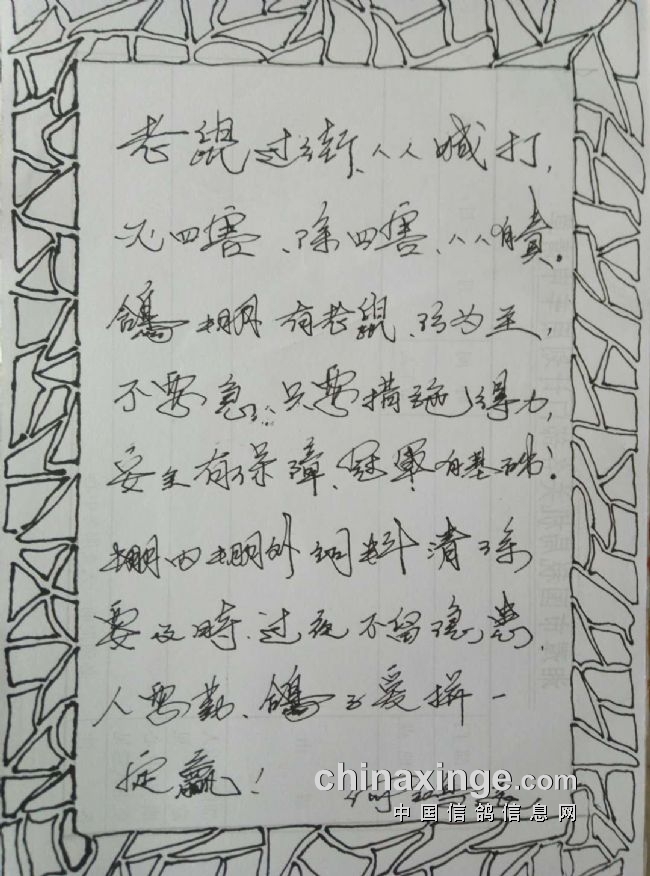 老鼠过街、人人喊打,
四害、除四害、人人有责。
鸽棚有老鼠、防为主,
不要急;只要措施得力,
安全有保障、冠军有基础。
棚内棚外饲料清除
要及时、过夜不留隐患.
人要勤、鸽子爱拼一
定赢!
chinaxinge.com
中国信鸽信息网